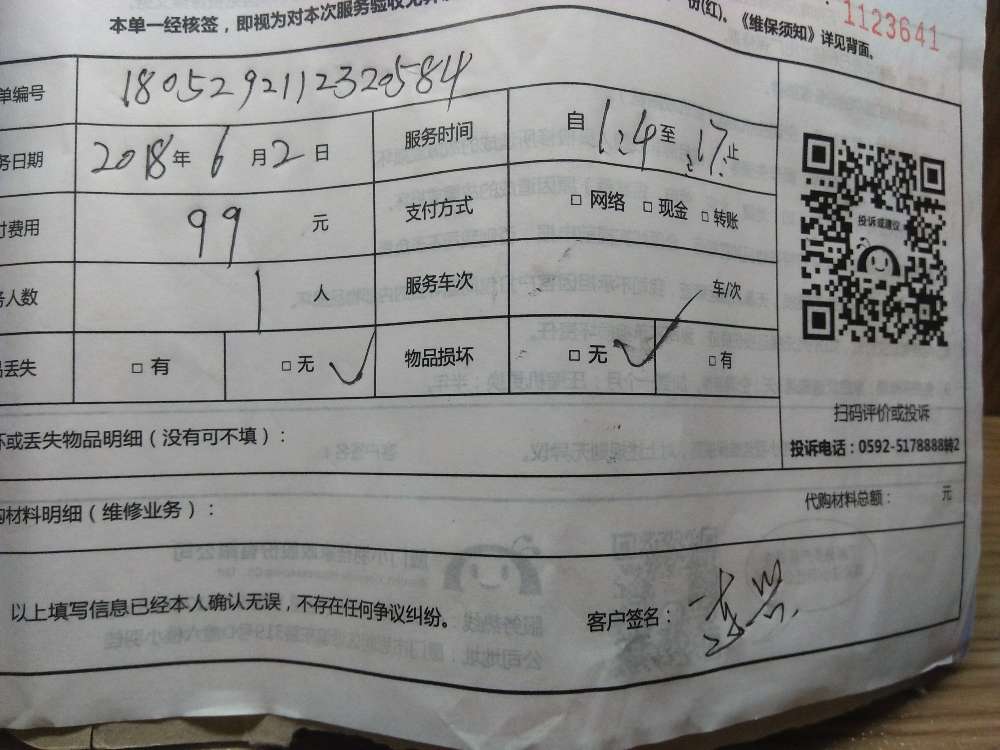 本单一经核签，即视为对本次服务验收无异
份(红)。《维保须知》详见背面。
1123641
单编号 180529211232058​4
务日期 2018年6月2日 服务时间 自1:24至2:17止
付费用 99元 支付方式 □ 网络 □ 现金 □ 转账
务人数 1人 服务车次 车/次
丢失 □ 有 □ 无 ✓ 物品损坏 □ 无 ✓ □ 有
投诉或建议
扫码评价或投诉
投诉电话：0592-5178888转2
坏或丢失物品明细（没有可不填）：
购材料明细（维修业务）： 代购材料总额： 元
以上填写信息已经本人确认无误，不存在任何争议纠纷。 客户签名：